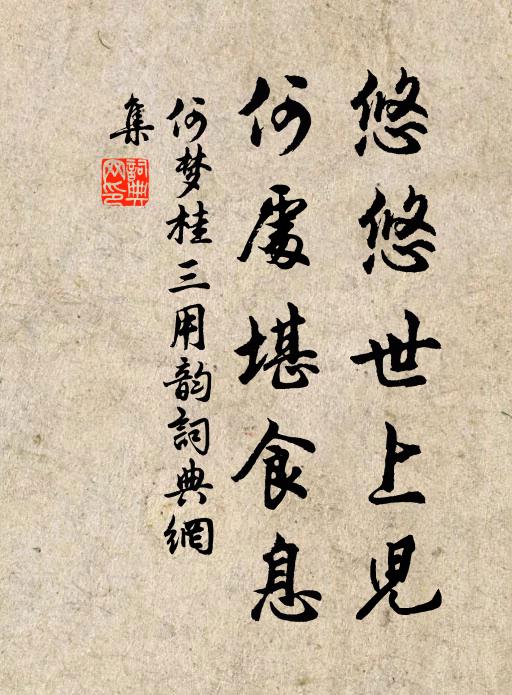 悠悠世上児
何處堪食息
何梦桂三用韵詞典網
集
詞典網印